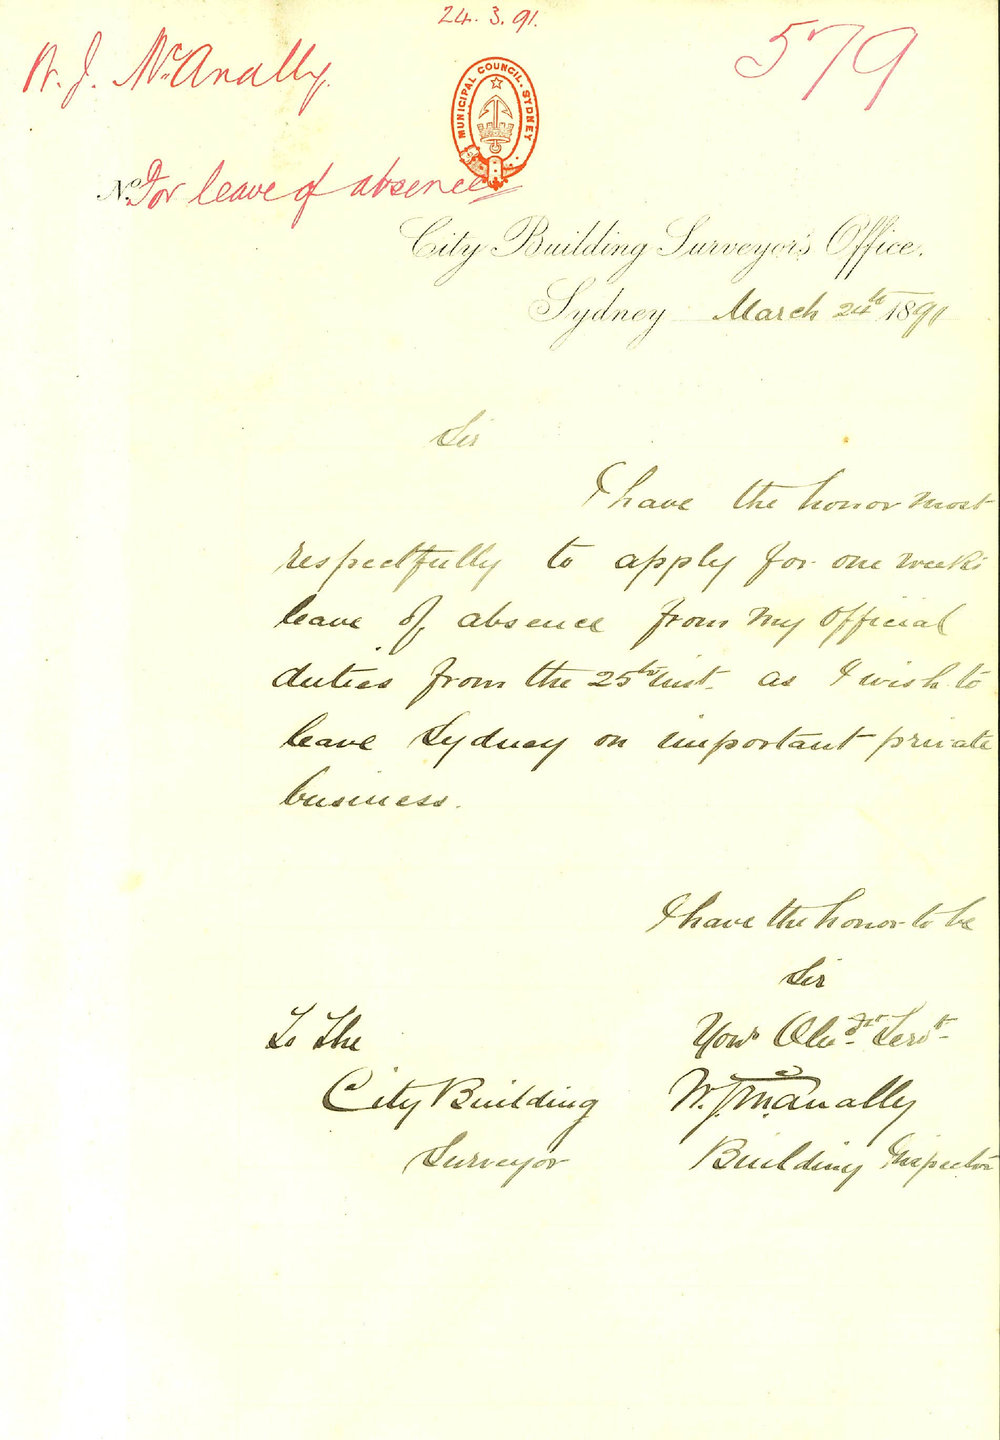 24.3.91.
W. J. McAnally.
579
MUNICIPAL COUNCIL. SYDNEY
No. For leave of absence
City Building Surveyor's Office.
Sydney March 24th 1891
Sir
I have the honor most
respectfully to apply for one weeks
leave of absence from my official
duties from the 25th inst. as I wish to
leave Sydney on important private
business.
I have the honor to be
Sir
Your Obedt. Servt.
W. J. McAnally
Building Inspector
To The
City Building
Surveyor